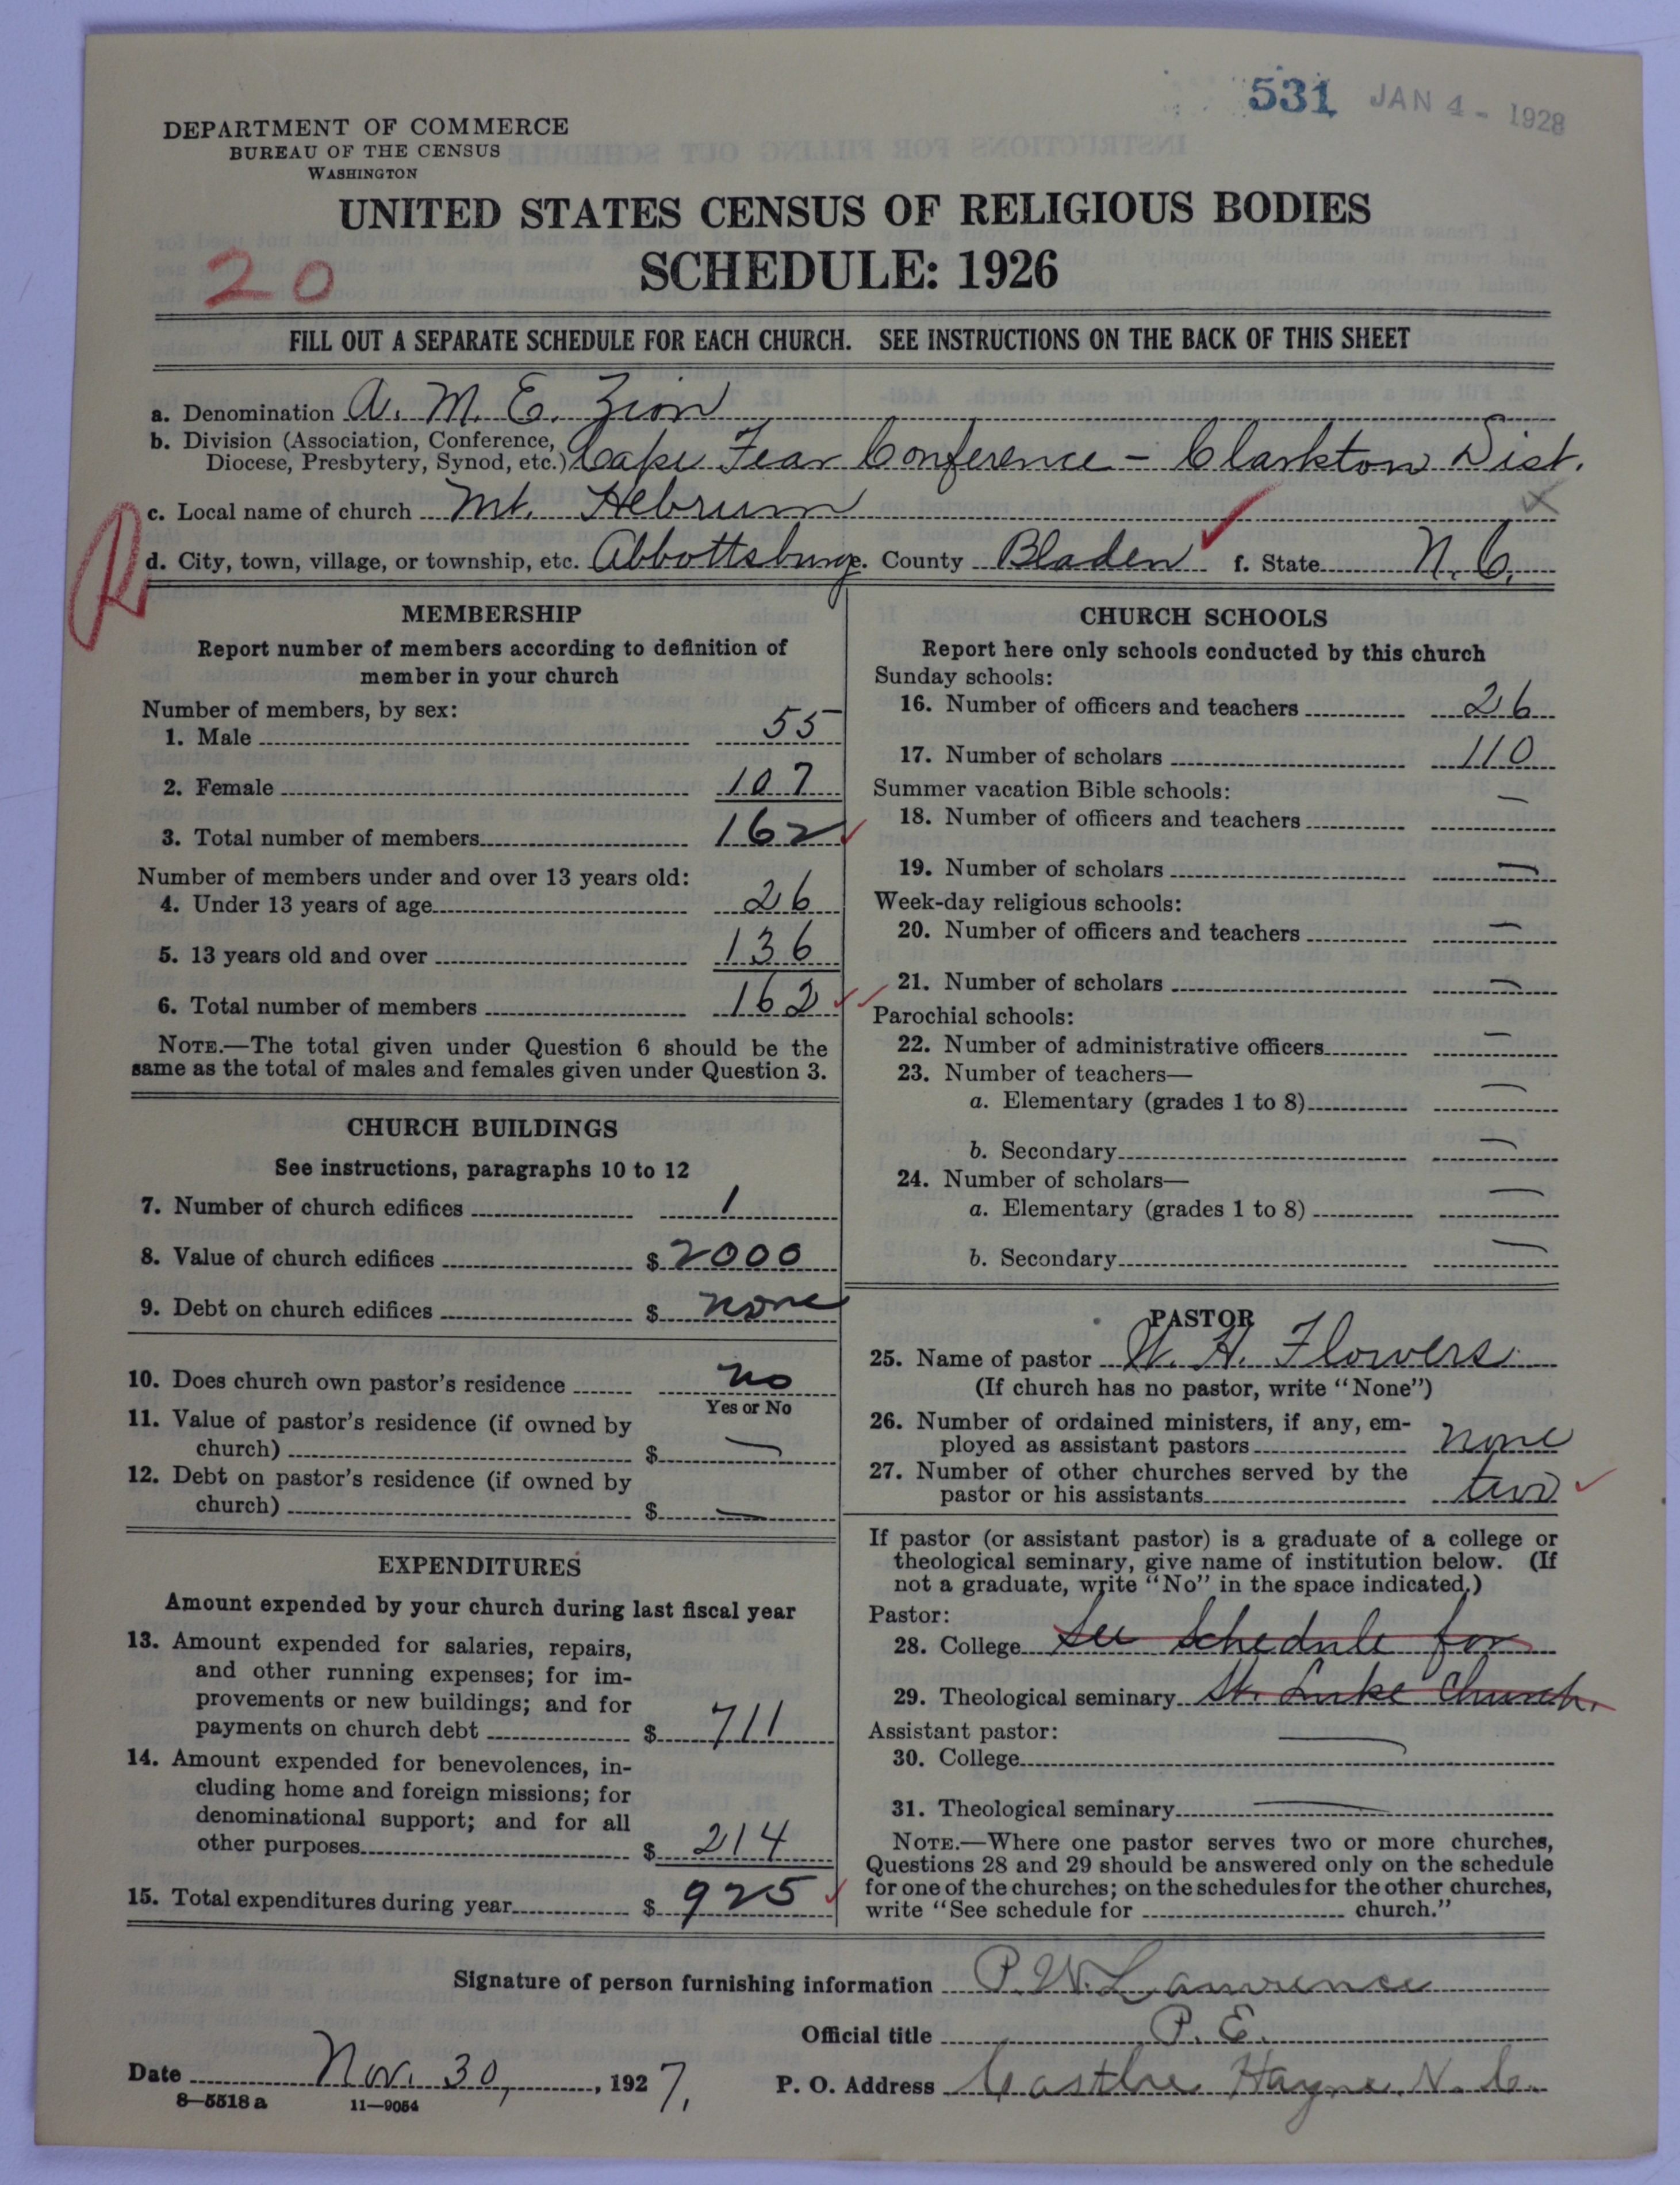 531 JAN 4 - 1928
DEPARTMENT OF COMMERCE
BUREAU OF THE CENSUS
WASHINGTON
UNITED STATES CENSUS OF RELIGIOUS BODIES
SCHEDULE: 1926
20
FILL OUT A SEPARATE SCHEDULE FOR EACH CHURCH. SEE INSTRUCTIONS ON THE BACK OF THIS SHEET
a. Denomination A. M. E. Zion
b. Division (Association, Conference,
Diocese, Presbytery, Synod, etc.) Cape Fear Conference - Clarkton Dist.
c. Local name of church Mt. Hebrum
d. City, town, village, or township, etc. Abbottsburg e. County Bladen f. State N. C.
MEMBERSHIP
Report number of members according to definition of
member in your church
Number of members, by sex:
1. Male 55
2. Female 107
3. Total number of members 162
Number of members under and over 13 years old:
4. Under 13 years of age 26
5. 13 years old and over 136
6. Total number of members 162
NOTE.—The total given under Question 6 should be the
same as the total of males and females given under Question 3.
CHURCH BUILDINGS
See instructions, paragraphs 10 to 12
7. Number of church edifices 1
8. Value of church edifices $ 2000
9. Debt on church edifices $ none
10. Does church own pastor's residence no
Yes or No
11. Value of pastor's residence (if owned by
church) $ —
12. Debt on pastor's residence (if owned by
church) $ —
EXPENDITURES
Amount expended by your church during last fiscal year
13. Amount expended for salaries, repairs,
and other running expenses; for im-
provements or new buildings; and for
payments on church debt $ 711
14. Amount expended for benevolences, in-
cluding home and foreign missions; for
denominational support; and for all
other purposes $ 214
15. Total expenditures during year $ 925
CHURCH SCHOOLS
Report here only schools conducted by this church
Sunday schools:
16. Number of officers and teachers 26
17. Number of scholars 110
Summer vacation Bible schools:
18. Number of officers and teachers —
19. Number of scholars —
Week-day religious schools:
20. Number of officers and teachers —
21. Number of scholars —
Parochial schools:
22. Number of administrative officers —
23. Number of teachers—
a. Elementary (grades 1 to 8) —
b. Secondary —
24. Number of scholars—
a. Elementary (grades 1 to 8) —
b. Secondary —
PASTOR
25. Name of pastor W. H. Flowers
(If church has no pastor, write "None")
26. Number of ordained ministers, if any, em-
ployed as assistant pastors none
27. Number of other churches served by the
pastor or his assistants two
If pastor (or assistant pastor) is a graduate of a college or
theological seminary, give name of institution below. (If
not a graduate, write "No" in the space indicated.)
Pastor:
28. College See Schedule for
29. Theological seminary St. Luke Church.
Assistant pastor:
30. College —
31. Theological seminary —
NOTE.—Where one pastor serves two or more churches,
Questions 28 and 29 should be answered only on the schedule
for one of the churches; on the schedules for the other churches,
write "See schedule for church."
Signature of person furnishing information P. W. Lawrence
Official title P. E.
Date Nov. 30, 1927. P. O. Address Castle Hayne, N. C.
8—5518 a 11—9054